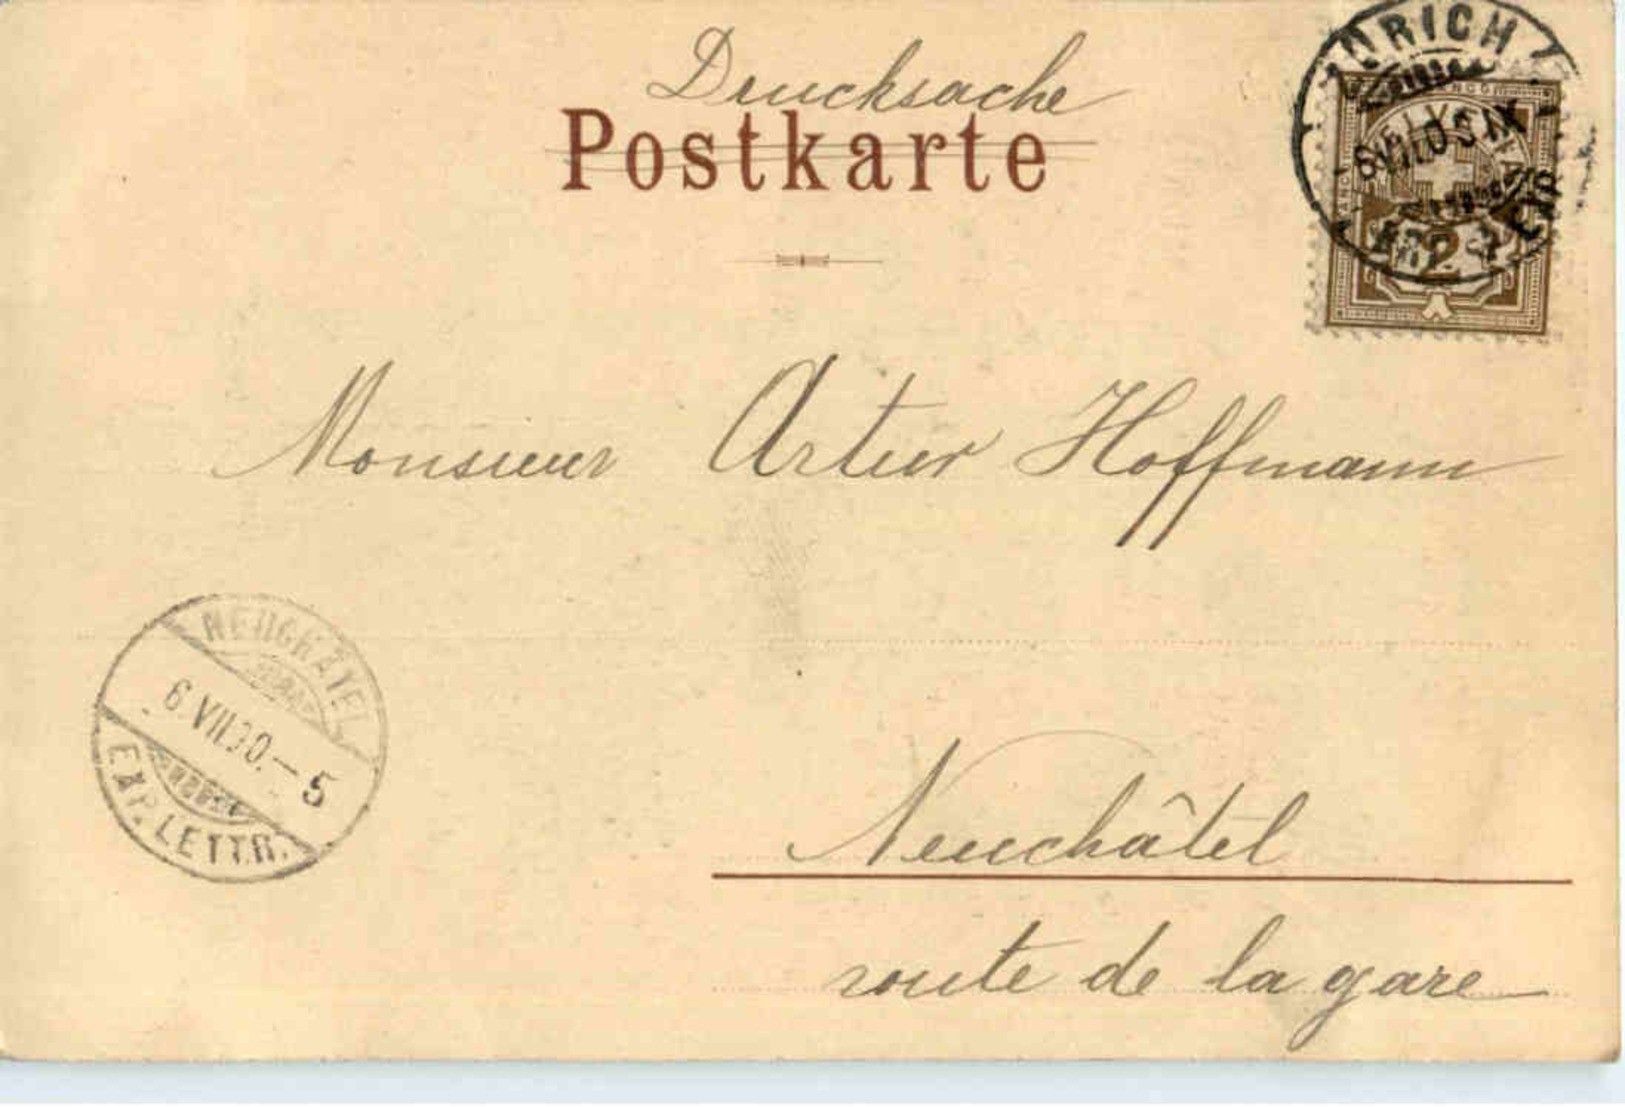 Drucksache
Postkarte
2
Monsieur Artur Hoffmann
NEUCHATEL
6 VII.00.-5
EXP. LETTR.
Neuchâtel
route de la gare